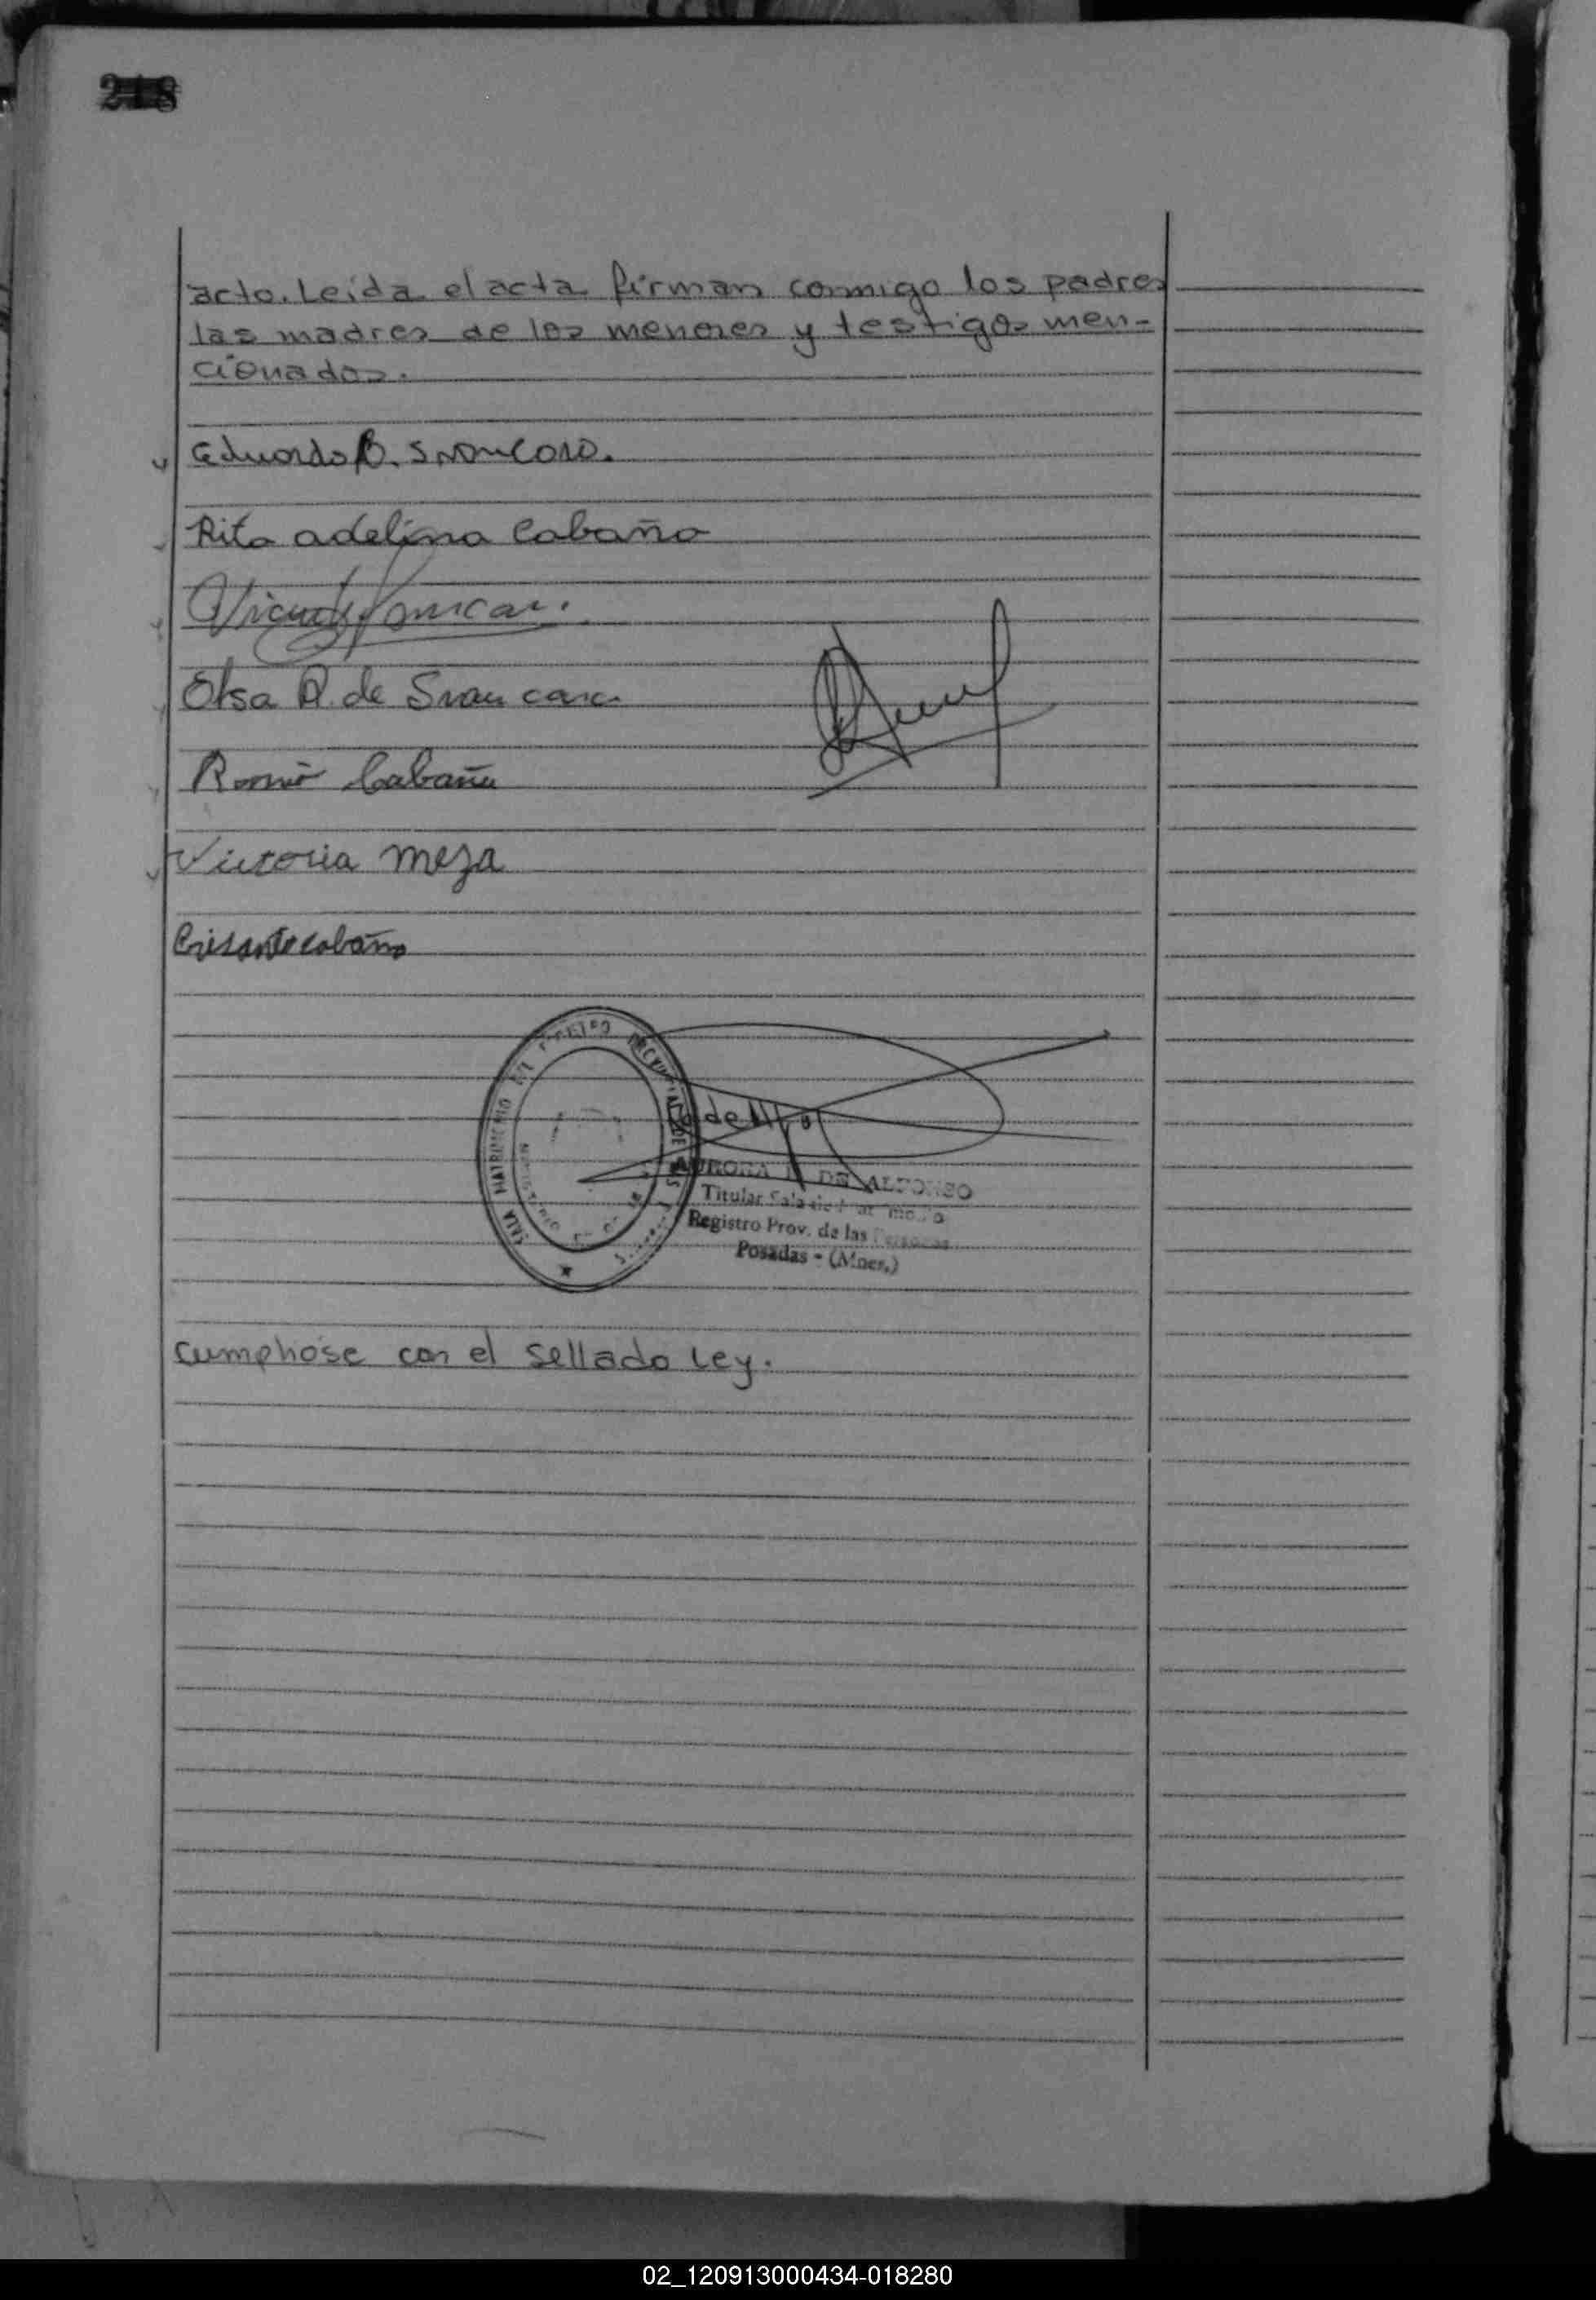 218
acto. Leída el acta firman conmigo los padres
las madres de los menores y testigos men-
cionados.
Eduardo B.
Rita adelina Cabaña
Elsa R. de
Cabaña
Victoria Meza
Crisanto cabaña
SALA MATRIMONIO DEL REGISTRO PROVINCIAL DE LAS
AURORA DE ALFONSO
Titular Sala de Matrimonio
Registro Prov. de las Personas
Posadas - (Mnes.)
Cumplióse con el sellado Ley.
02_120913000434-018280